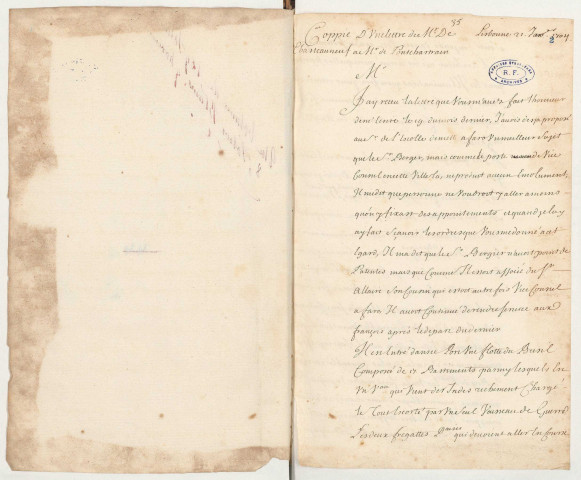 85
Coppie D'Une lettre de Mr. De Lisbonne 21 Janv.
Chasteauneuf a Mr. de Pontchartrain
Mr
J'ay receu la lettre que Vous m'avez fait l'honneur
de m'ecrire le 19 du mois dernier, J'avois desja proposé
au Sr. de l'Escolle d'envoyer a faro Un meilleur Sujet
que le Sr. Bergier, mais comme le poste de Vice
Consul en cette Ville la, ne produit aucun Emolument,
Il m'a dit que personne ne Voudroit y aller a moins
qu'on y fixast des appointements et quand je luy
ay fait sçavoir les ordres que Vous me donnés a cet
Egard, Il m'a dit que le Sr. Bergier n'avoit point de
Patentes mais que Comme Il estoit associé du Sr.
Allaire Son Cousin qui estoit autrefois Vice Consul
a faro Il avoit Continué de rendre service aux
françois aprés le depart du dernier
Il est entré dans ce Port Une flotte du Bresil
Composée de Bastiments parmy lesquels Il en
qui Vient des Indes richement Chargé
le Tout escorté par Un seul Vaisseau de Guerre
Les deux fregattes qui devoient aller En Course
ARCHIVES
R.F.